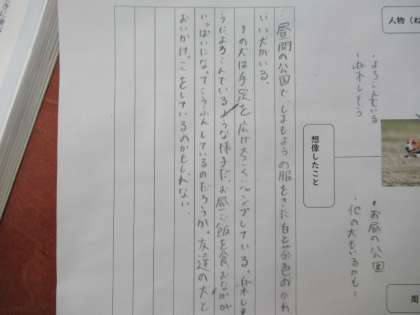 昼間の公園で、しまもようの服をきた白と茶色のかわ
いい犬がいる。
その犬は手足を広げ、ジャンプしている。楽しそ
うによろこんでいるような様子だ。お昼ご飯を食べおなかが
いっぱいになってこうふんしているのだろうか。友達の犬と
おいかけっこをしているのかもしれない。
人物
・よろこんでいる
・楽しそう
想像したこと
・お昼の公園
・他の犬もいるかも
周